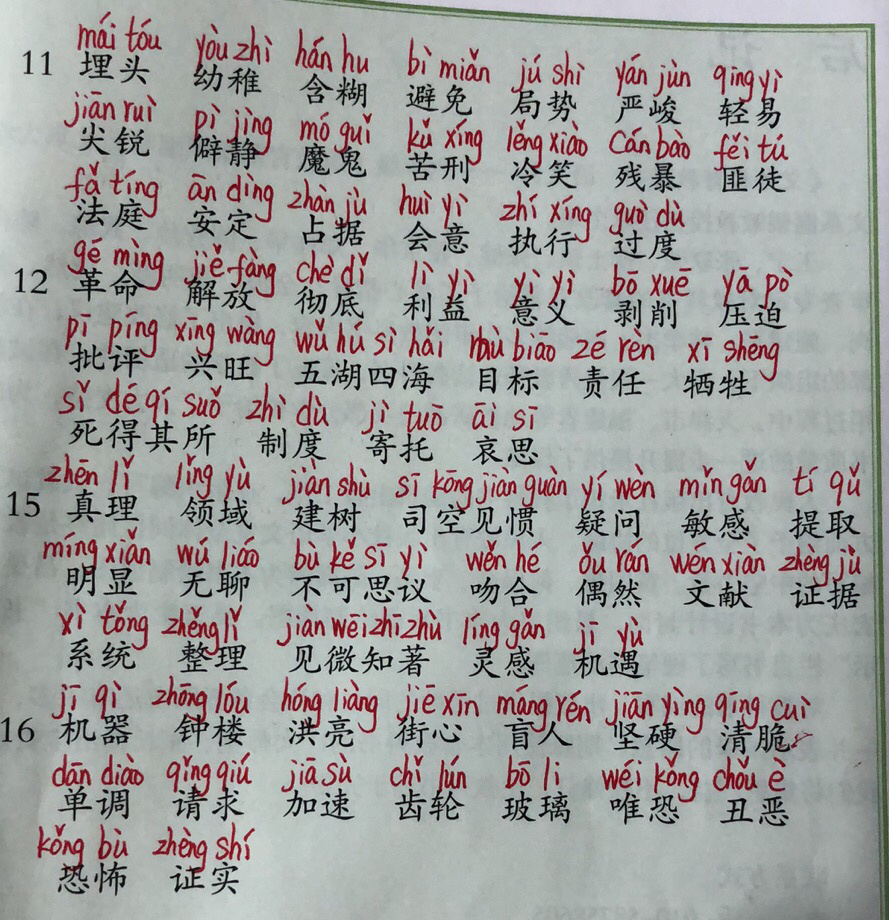 mái tóu yòu zhì hán hu bì miǎn jú shì yán jùn qīng yì
11 埋头 幼稚 含糊 避免 局势 严峻 轻易
jiān ruì pì jìng mó guǐ kǔ xíng lěng xiào cán bào fěi tú
尖锐 僻静 魔鬼 苦刑 冷笑 残暴 匪徒
fǎ tíng ān dìng zhàn jù huì yì zhí xíng guò dù
法庭 安定 占据 会意 执行 过度
gé mìng jiě fàng chè dǐ lì yì yì yì bō xuē yā pò
12 革命 解放 彻底 利益 意义 剥削 压迫
pī píng xīng wàng wǔ hú sì hǎi mù biāo zé rèn xī shēng
批评 兴旺 五湖四海 目标 责任 牺牲
sǐ dé qí suǒ zhì dù jì tuō āi sī
死得其所 制度 寄托 哀思
zhēn lǐ lǐng yù jiàn shù sī kōng jiàn guàn yí wèn mǐn gǎn tí qǔ
15 真理 领域 建树 司空见惯 疑问 敏感 提取
míng xiǎn wú liáo bù kě sī yì wěn hé ǒu rán wén xiàn zhèng jù
明显 无聊 不可思议 吻合 偶然 文献 证据
xì tǒng zhěng lǐ jiàn wēi zhī zhù líng gǎn jī yù
系统 整理 见微知著 灵感 机遇
jī qì zhōng lóu hóng liàng jiē xīn máng rén jiān yìng qīng cuì
16 机器 钟楼 洪亮 街心 盲人 坚硬 清脆
dān diào qǐng qiú jiā sù chǐ lún bō li wéi kǒng chǒu è
单调 请求 加速 齿轮 玻璃 唯恐 丑恶
kǒng bù zhèng shí
恐怖 证实